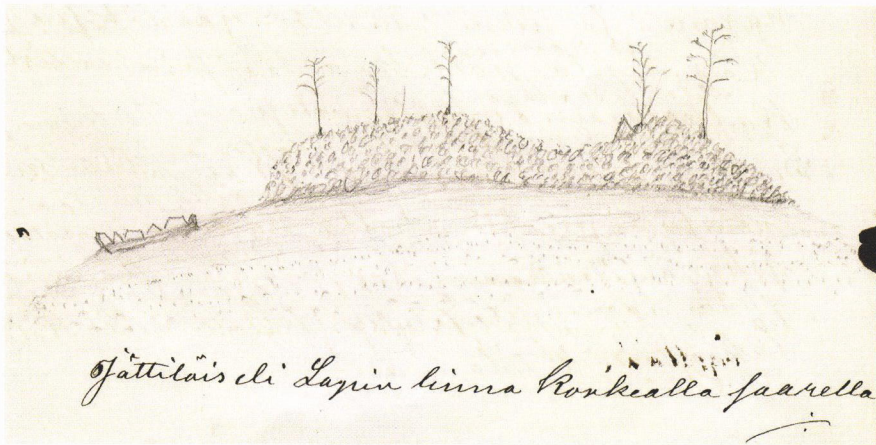 Jättiläis eli Lapin linna Korkealla saarella